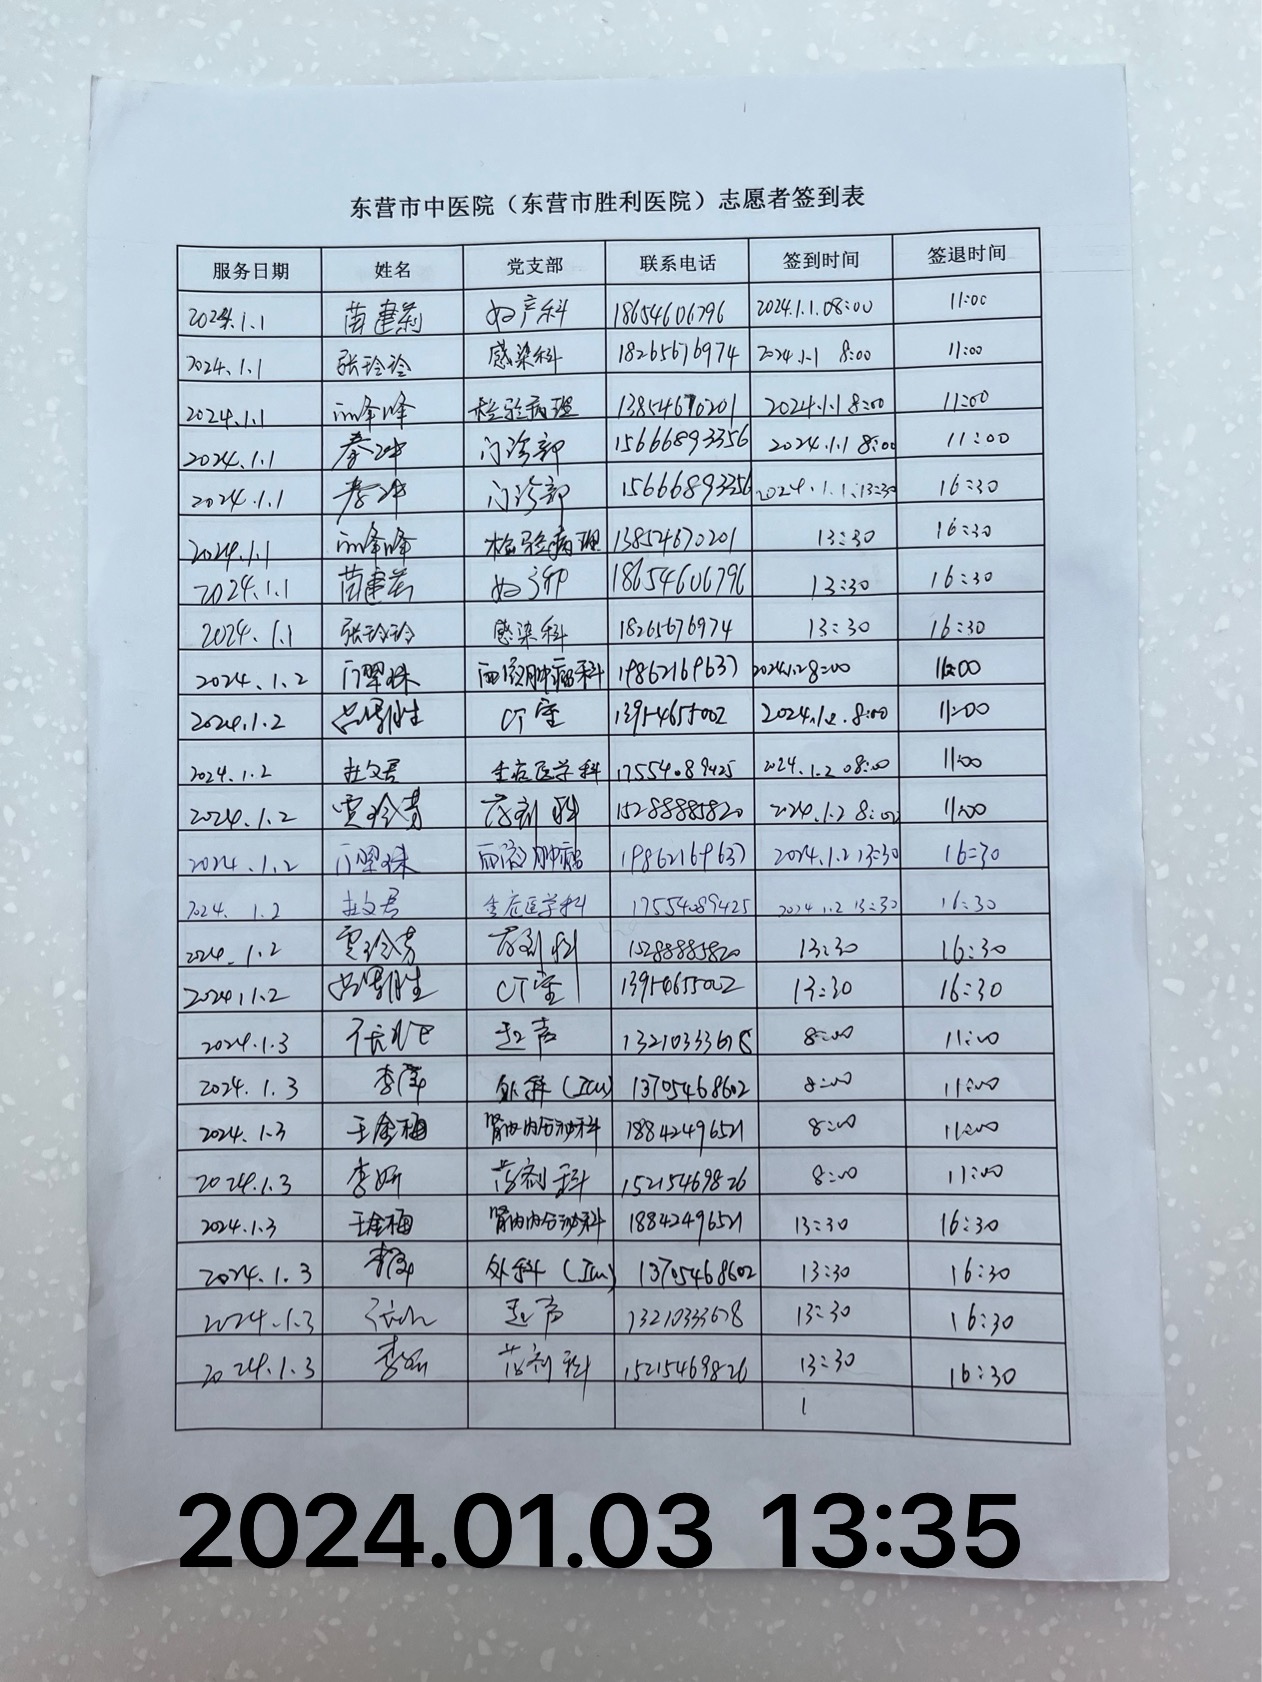 东营市中医院（东营市胜利医院）志愿者签到表
服务日期 姓名 党支部 联系电话 签到时间 签退时间
2024.1.1 苗建莉 妇产科 18654606796 2024.1.1.08:00 11:00
2024.1.1 张玲玲 感染科 18265676974 2024.1.1 8:00 11:00
2024.1.1 峰峰 检验病理 13854670201 2024.1.1 8:00 11:00
2024.1.1 秦冲 门诊部 15666893356 2024.1.1 8:00 11:00
2024.1.1 秦冲 门诊部 15666893356 2024.1.1.13:30 16:30
2024.1.1 峰峰 检验病理 13854670201 13:30 16:30
2024.1.1 苗建莉 妇产科 18654606796 13:30 16:30
2024.1.1 张玲玲 感染科 18265676974 13:30 16:30
2024.1.2 血液肿瘤科 19862169637 2024.1.2 8:00 11:00
2024.1.2 CT室 13954655002 2024.1.2. 8:00 11:00
2024.1.2 杜文君 重症医学科 17554089425 2024.1.2 08:00 11:00
2024.1.2 贾玲芳 药剂科 15288885820 2024.1.2 8:00 11:00
2024.1.2 血液肿瘤 19862169637 2024.1.2 13:30 16:30
2024. 1.2 杜文君 重症医学科 17554089425 2024.1.2 13:30 16:30
2024.1.2 贾玲芳 药剂科 15288885820 13:30 16:30
2024.1.2 CT室 13954655002 13:30 16:30
2024.1.3 超声 13210333678 8:00 11:00
2024.1.3 李 外科（Icu） 13705468602 8:00 11:00
2024.1.3 王金梅 肾内内分泌科 18842496521 8:00 11:00
2024.1.3 李妍 药剂科 15215469826 8:00 11:00
2024.1.3 王金梅 肾内内分泌科 18842496521 13:30 16:30
2024.1.3 李 外科（Icu） 13705468602 13:30 16:30
2024.1.3 超声 13210333678 13:30 16:30
2024.1.3 李妍 药剂科 15215469826 13:30 16:30
2024.01.03 13:35